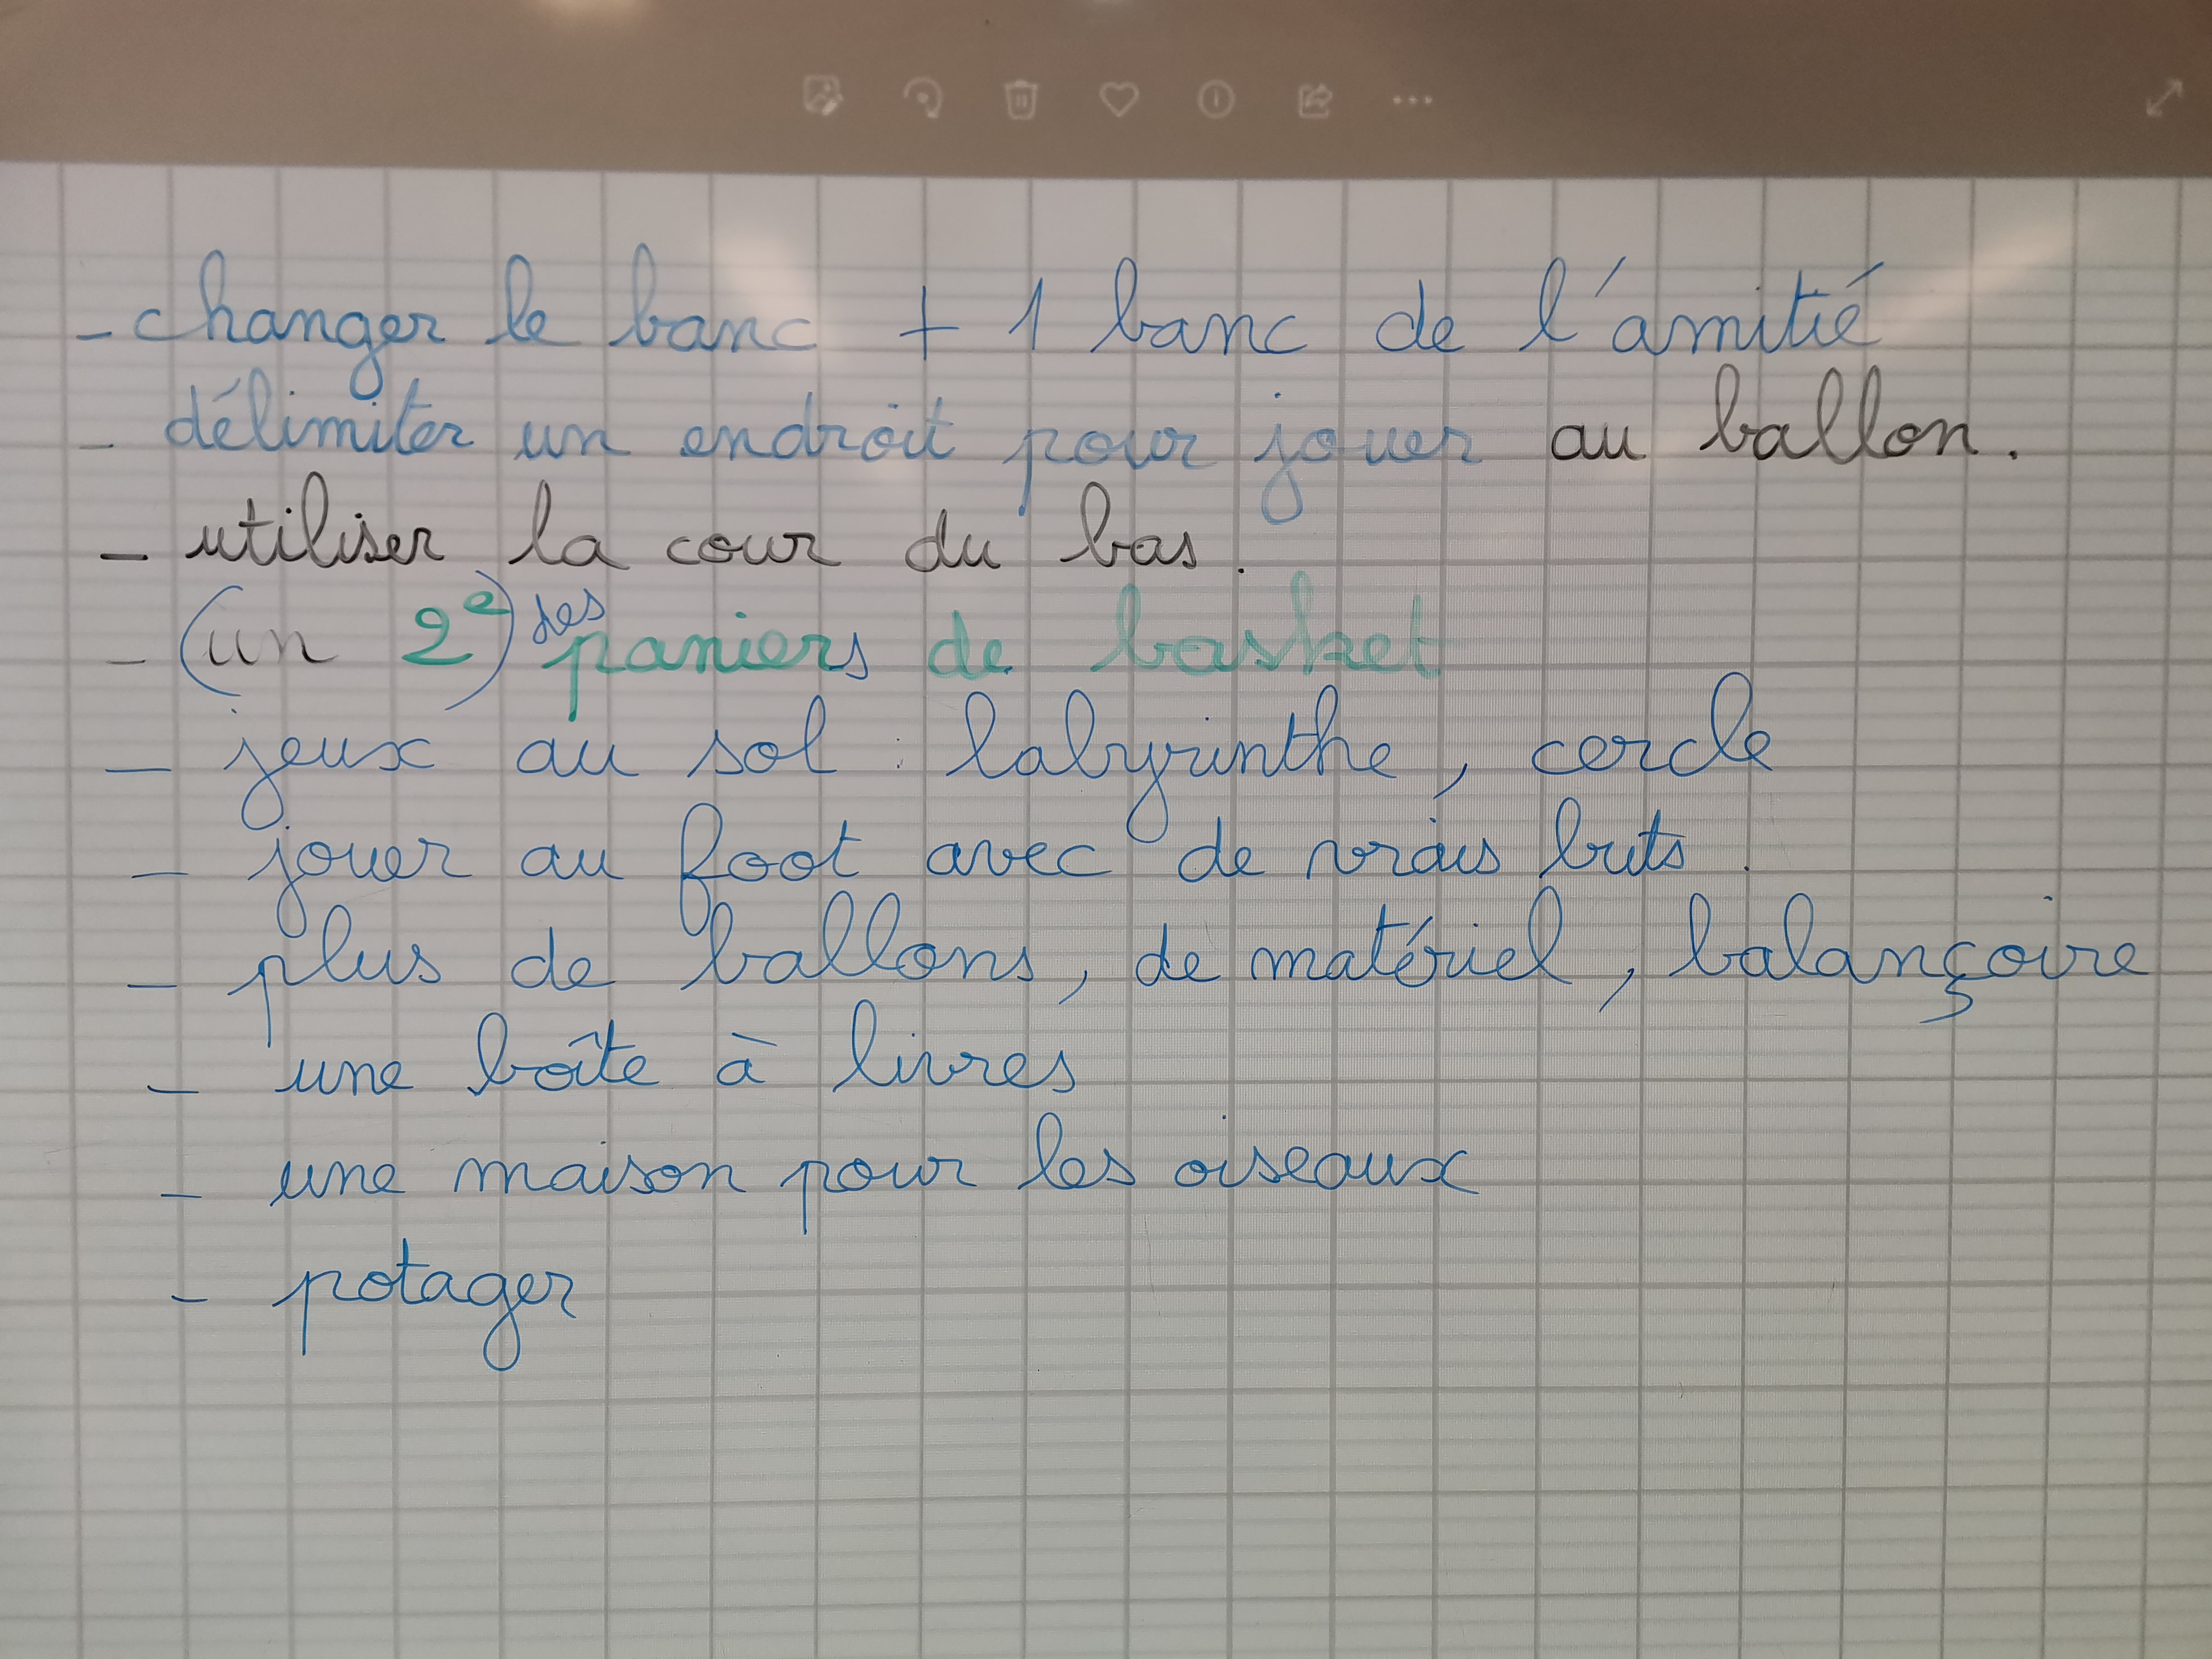 - changer le banc + 1 banc de l'amitié
- délimiter un endroit pour jouer au ballon.
- utiliser la cour du bas.
- (un 2e) des paniers de basket
- jeux au sol : labyrinthe, cercle
- jouer au foot avec de vrais buts.
- plus de ballons, de matériel, balançoire
- une boîte à livres
- une maison pour les oiseaux
- potager